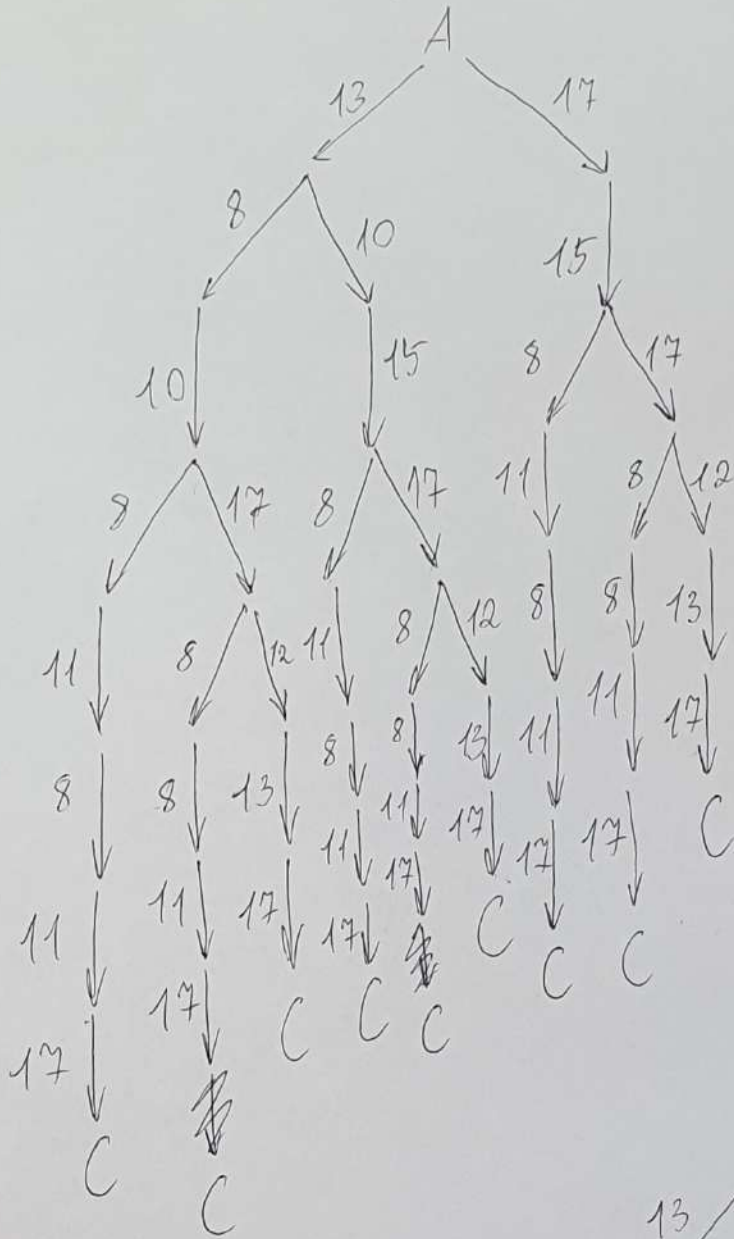 A
13 17
8 10 15
10 15 8 17
8 17 8 17 11 8 12
11 8 12 11 8 12 8 8 13
8 8 13 8 8 13 11 11 17
11 11 17 11 11 17 17 17 C
17 17 C 17 17 C C C
C C C C
13